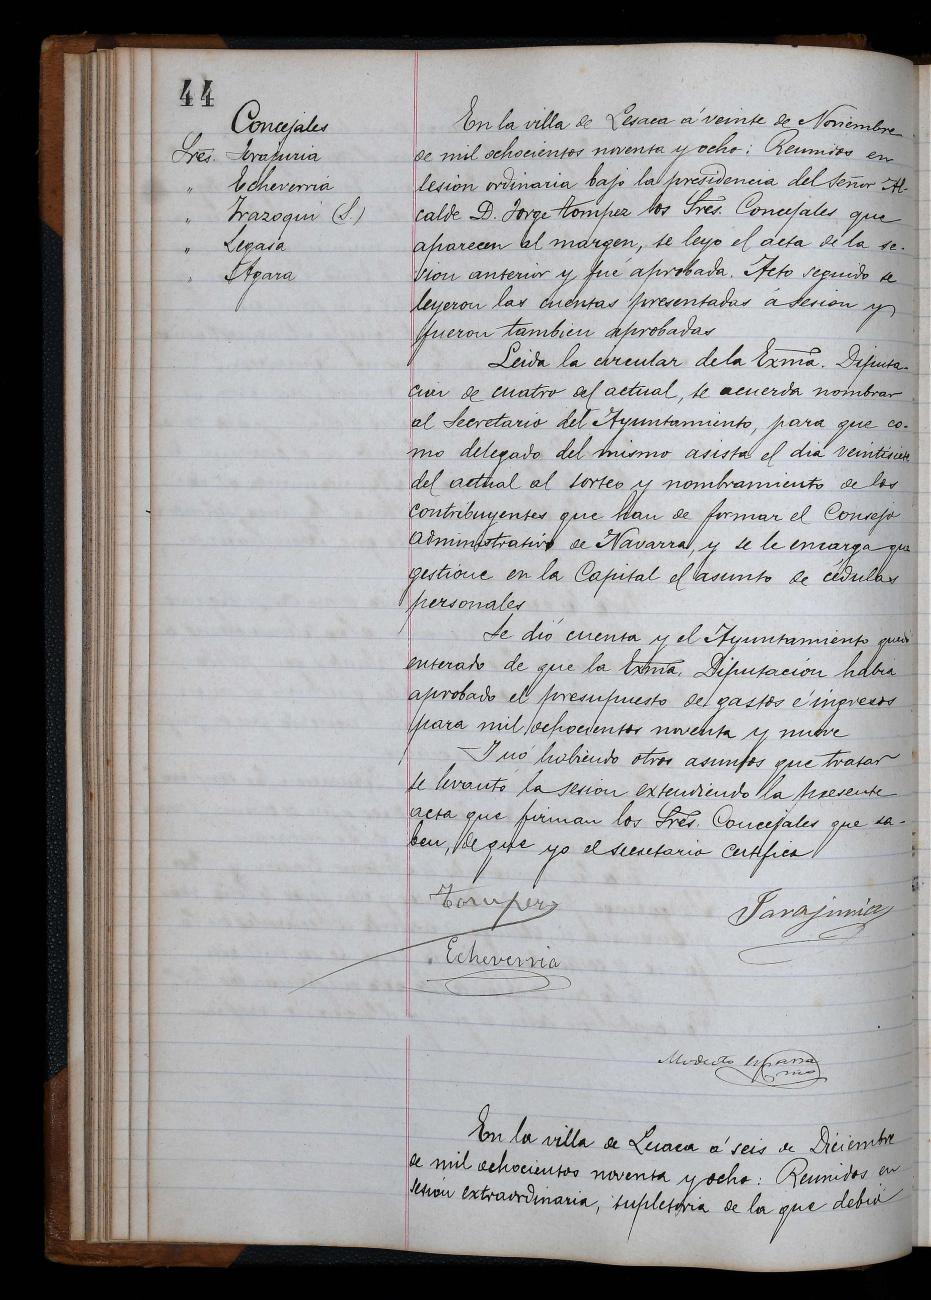 44
Concejales
Sres. Tarajuria
" Echeverria
" Irazoqui (S.)
" Legasa
" Ugara
En la villa de Lesaca á veinte de Noviembre
de mil ochocientos noventa y ocho: Reunidos en
sesion ordinaria bajo la presidencia del Señor Al-
calde D. Jorge Tompez los Sres. Concejales que
aparecen al margen, se leyo el acta de la se-
sion anterior y fué aprobada. Acto seguido se
leyeron las cuentas presentadas á sesion y
fueron tambien aprobadas
Leida la circular de la Exma. Diputa-
cion de cuatro del actual, se acuerda nombrar
al Secretario del Ayuntamiento, para que co-
mo delegado del mismo asista el dia veintisiete
del actual al sorteo y nombramiento de los
contribuyentes que han de formar el Consejo
administrativo de Navarra, y se le encarga que
gestione en la Capital el asunto de cédulas
personales
Se dió cuenta y el Ayuntamiento quedó
enterado de que la Exma. Diputación habia
aprobado el presupuesto de gastos é ingresos
para mil ochocientos noventa y nueve
Y no habiendo otros asuntos que tratar
se levantó la sesion extendiendo la presente
acta que firman los Sres. Concejales que sa-
ben, de que yo el secretario certifico
Tompez
Tarajuria
Echeverria
Modesto
En la villa de Lesaca á seis de Diciembre
de mil ochocientos noventa y ocho: Reunidos en
sesion extraordinaria, supletoria de la que debió